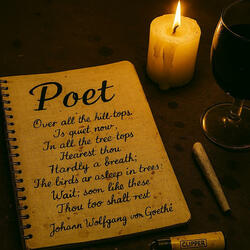 Poet
Over all the hill-tops
Is quiet now,
In all the tree-tops
Hearest thou
Hardly a breath;
The birds are asleep in trees:
Wait; soon like these
Thou too shalt rest.
Johann Wolfgang von Goethe
CLIPPER